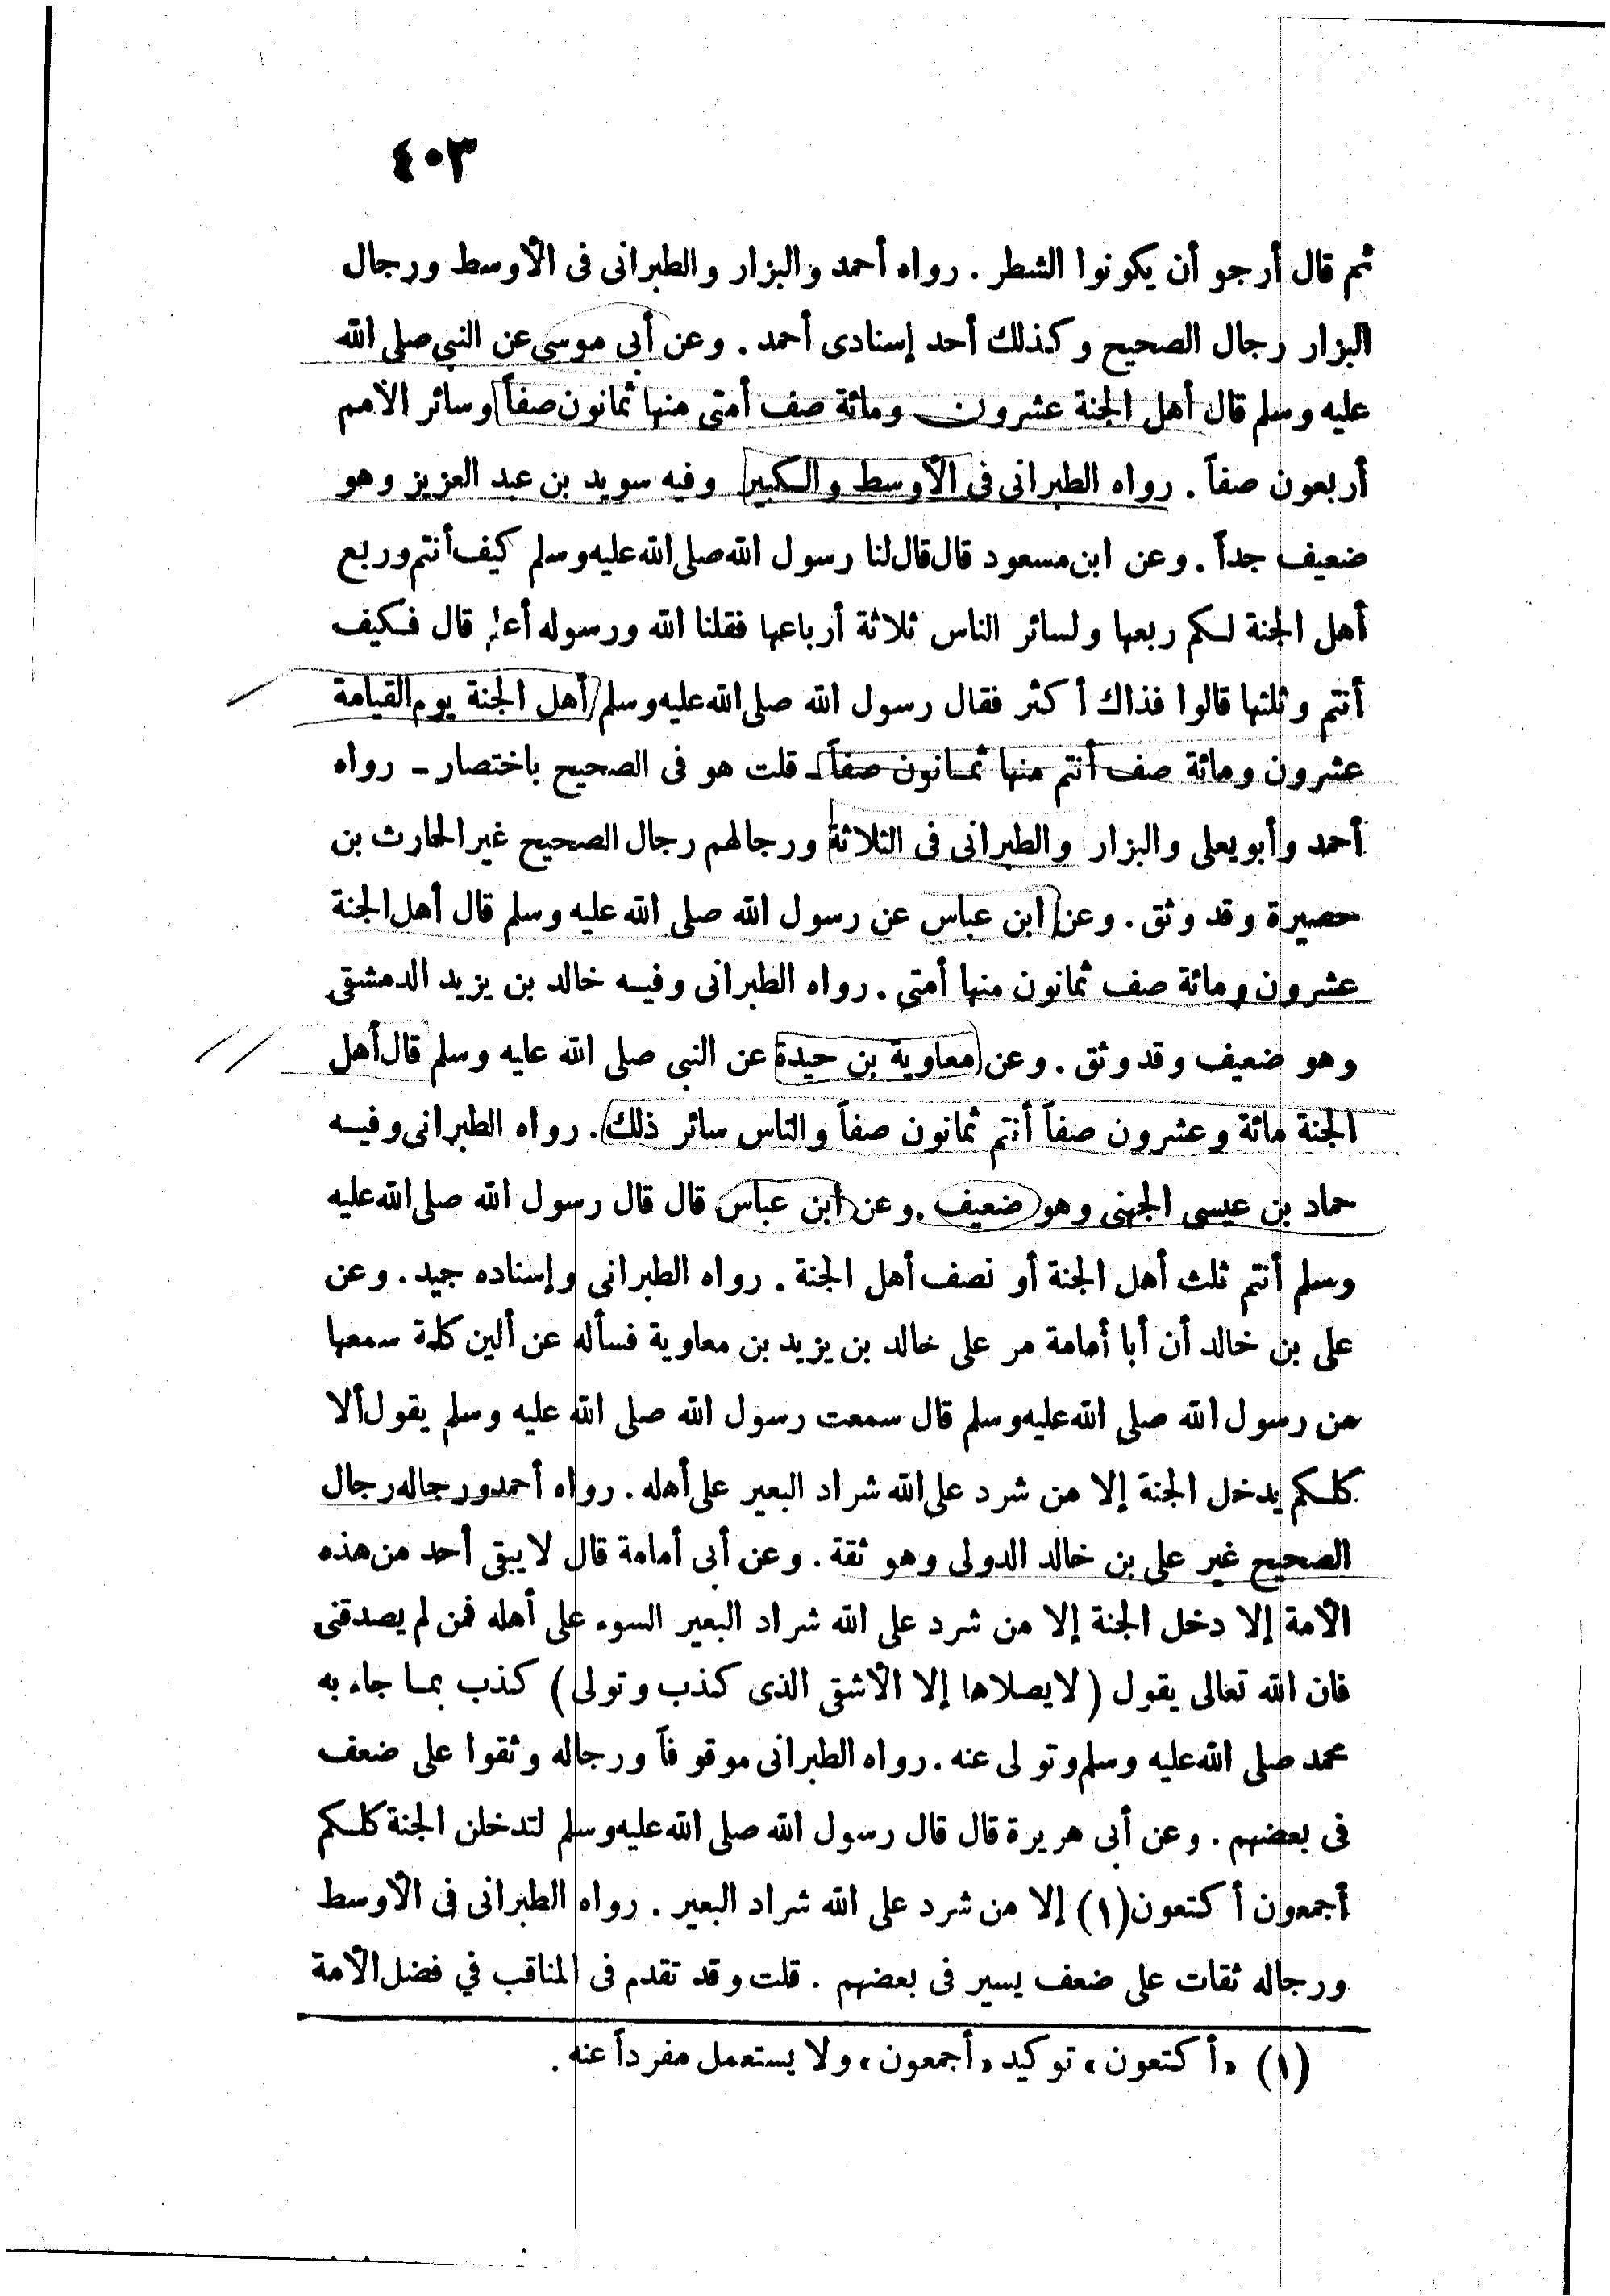 ٤٠٣
ثم قال أرجو أن يكونوا الشطر . رواه أحمد والبزار والطبرانى فى الأوسط ورجال
البزار رجال الصحيح وكذلك أحد إسنادى أحمد . وعن أبى موسى عن النبى صلى الله
عليه وسلم قال أهل الجنة عشرون ومائة صف أمتى منها ثمانون صفاً وسائر الأمم
أربعون صفاً . رواه الطبرانى فى الأوسط والكبير وفيه سويد بن عبد العزيز وهو
ضعيف جداً . وعن ابن مسعود قال قال لنا رسول الله صلى الله عليه وسلم كيف أنتم وربع
أهل الجنة لكم ربعها ولسائر الناس ثلاثة أرباعها فقلنا الله ورسوله أعلم قال فكيف
أنتم وثلثها قالوا فذاك أكثر فقال رسول الله صلى الله عليه وسلم أهل الجنة يوم القيامة
عشرون ومائة صف أنتم منها ثمانون صفاً ـ قلت هو فى الصحيح باختصار ـ رواه
أحمد وأبو يعلى والبزار والطبرانى فى الثلاثة ورجالهم رجال الصحيح غير الحارث بن
حصيرة وقد وثق . وعن ابن عباس عن رسول الله صلى الله عليه وسلم قال أهل الجنة
عشرون ومائة صف ثمانون منها أمتى . رواه الطبرانى وفيه خالد بن يزيد الدمشقى
وهو ضعيف وقد وثق . وعن معاوية بن حيدة عن النبى صلى الله عليه وسلم قال أهل
الجنة مائة وعشرون صفاً أنتم ثمانون صفاً والناس سائر ذلك . رواه الطبرانى وفيه
حماد بن عيسى الجهنى وهو ضعيف . وعن ابن عباس قال قال رسول الله صلى الله عليه
وسلم أنتم ثلث أهل الجنة أو نصف أهل الجنة . رواه الطبرانى وإسناده جيد . وعن
على بن خالد أن أبا أمامة مر على خالد بن يزيد بن معاوية فسأله عن ألين كلمة سمعها
من رسول الله صلى الله عليه وسلم قال سمعت رسول الله صلى الله عليه وسلم يقول ألا
كلكم يدخل الجنة إلا من شرد على الله شراد البعير على أهله . رواه أحمد ورجاله رجال
الصحيح غير على بن خالد الدولى وهو ثقة . وعن أبى أمامة قال لا يبقى أحد من هذه
الأمة إلا دخل الجنة إلا من شرد على الله شراد البعير السوء على أهله فمن لم يصدقنى
فان الله تعالى يقول (لا يصلاها إلا الأشقى الذى كذب وتولى) كذب بما جاء به
محمد صلى الله عليه وسلم وتولى عنه . رواه الطبرانى موقوفاً ورجاله وثقوا على ضعف
فى بعضهم . وعن أبى هريرة قال قال رسول الله صلى الله عليه وسلم لتدخلن الجنة كلكم
أجمعون أكتعون (١) إلا من شرد على الله شراد البعير . رواه الطبرانى فى الأوسط
ورجاله ثقات على ضعف يسير فى بعضهم . قلت وقد تقدم فى المناقب في فضل الأمة
(١) «أكتعون» توكيد «أجمعون» ولا يستعمل مفرداً عنه .